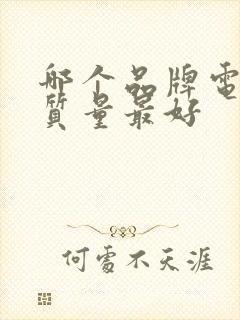 哪个品牌電
質量最好
何處不天涯